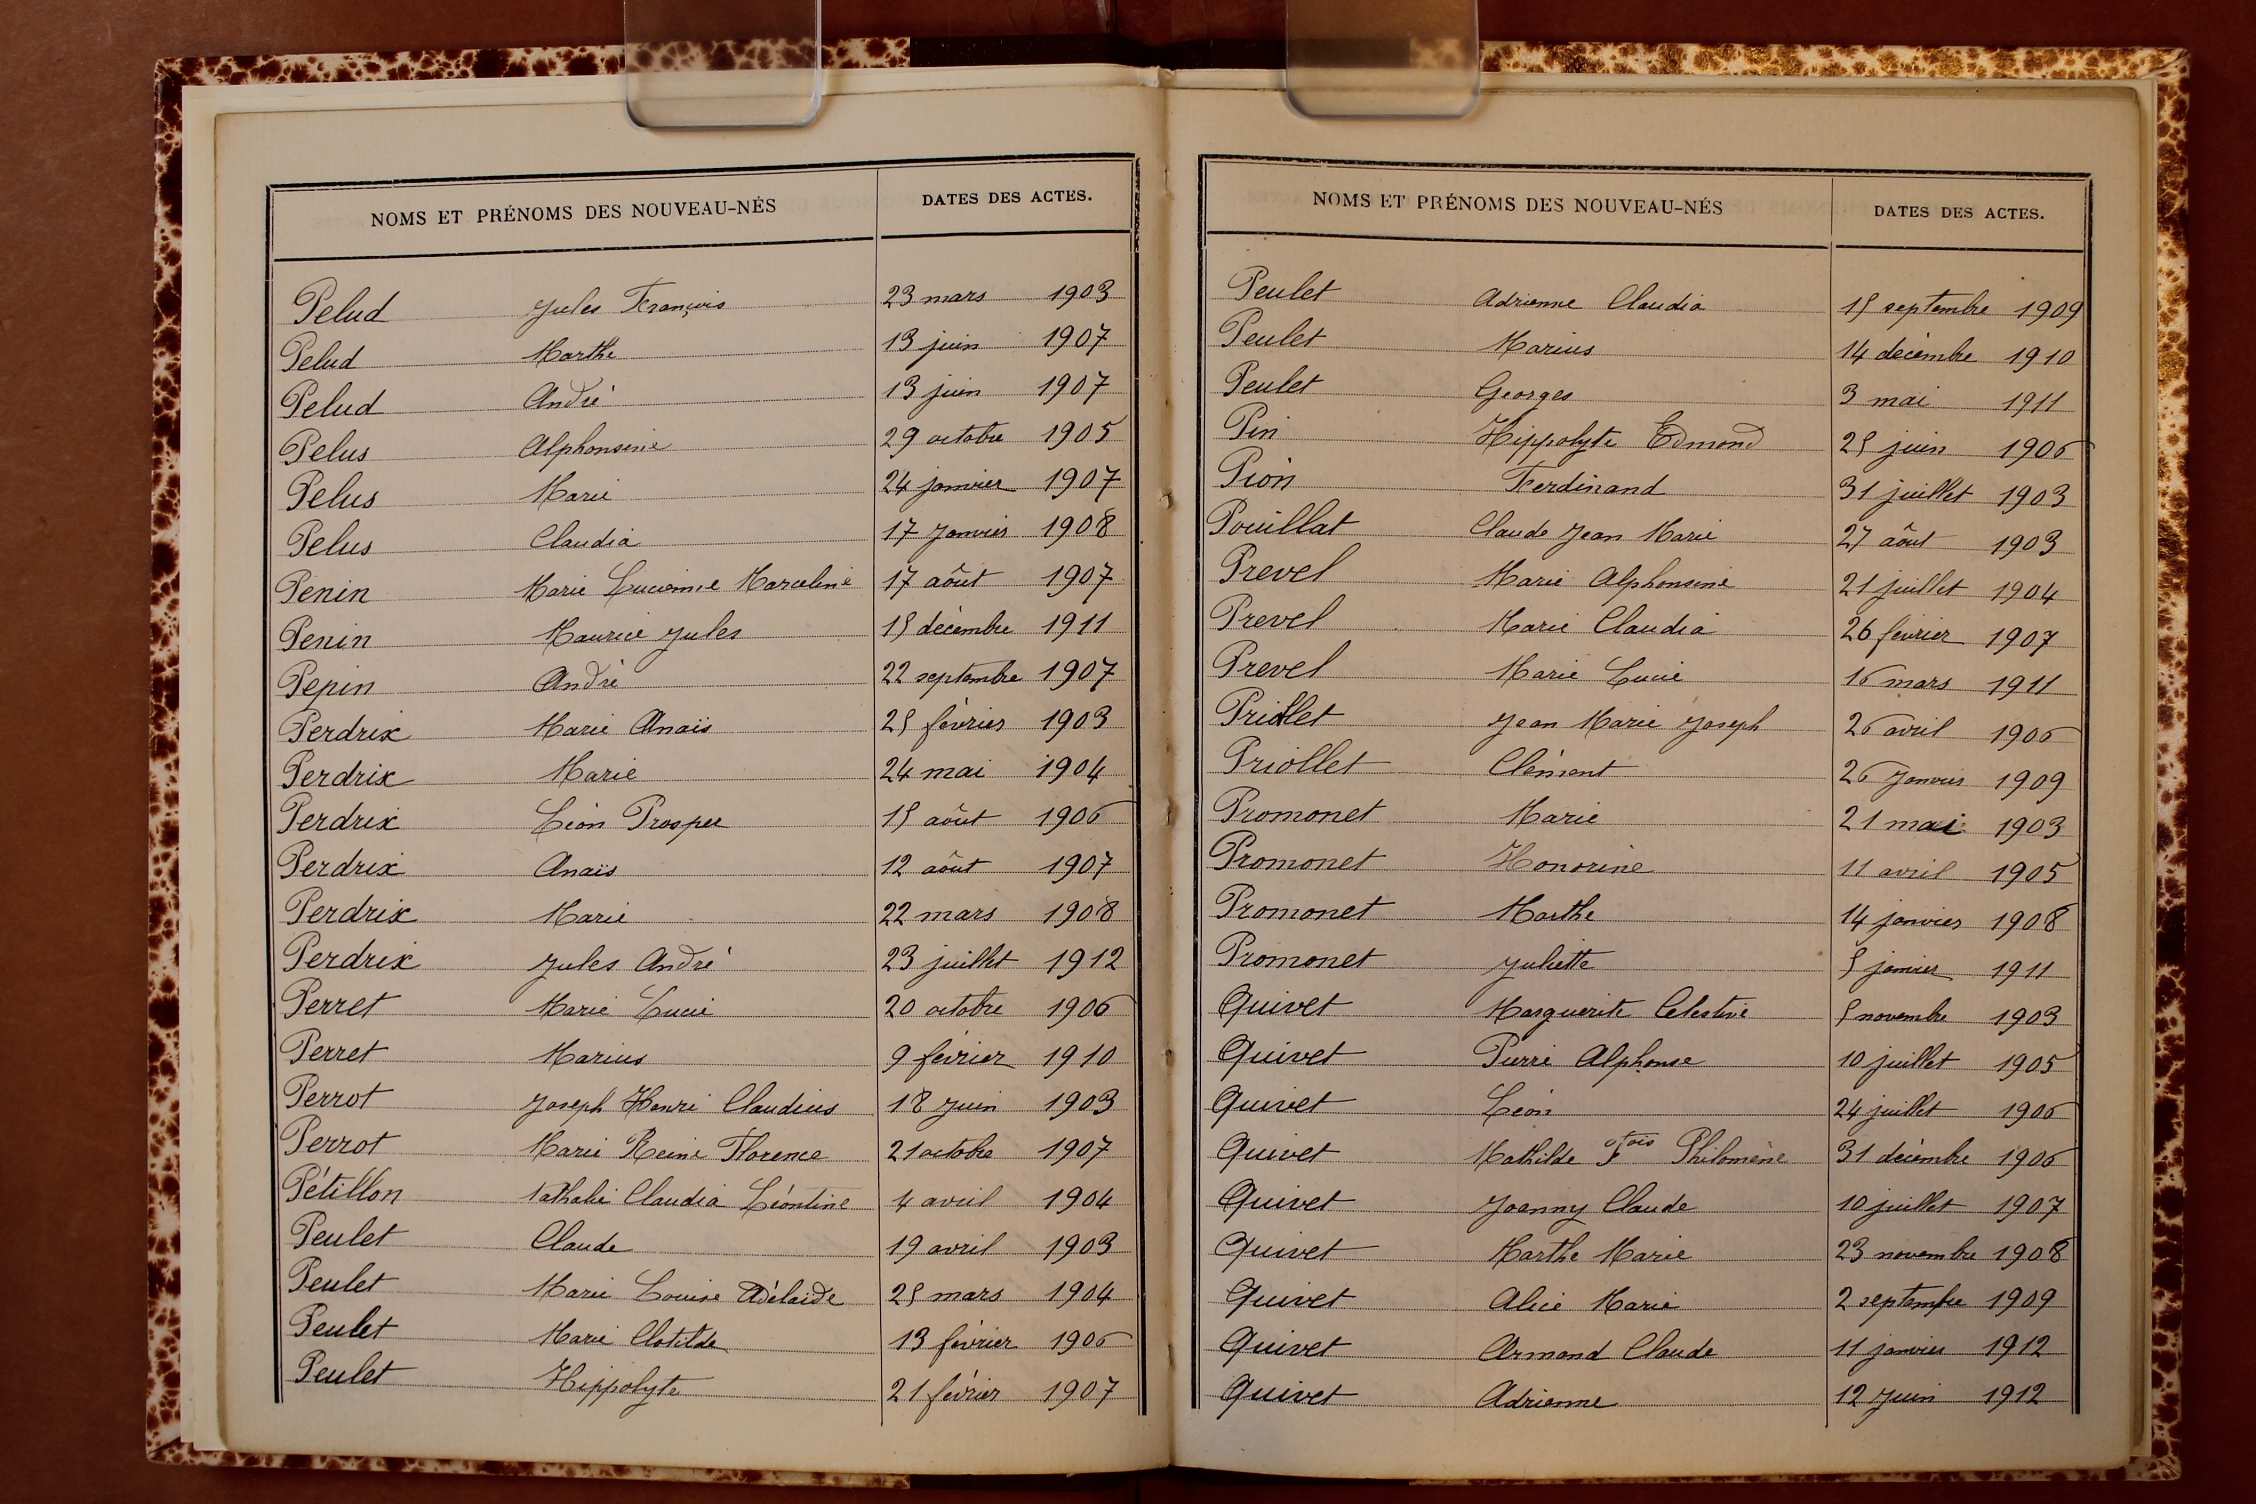 NOMS ET PRÉNOMS DES NOUVEAU-NÉS DATES DES ACTES.
Pelud Jules François 23 mars 1903
Pelud Marthe 13 juin 1907
Pelud André 13 juin 1907
Pelus Alphonsine 29 octobre 1905
Pelus Marie 24 janvier 1907
Pelus Claudia 17 Janvier 1908
Penin Marie Lucienne Marceline 17 août 1907
Penin Maurice Jules 15 décembre 1911
Pepin André 22 septembre 1907
Perdrix Marie Anaïs 25 février 1903
Perdrix Marie 24 mai 1904
Perdrix Léon Prosper 15 août 1906
Perdrix Anaïs 12 août 1907
Perdrix Marie 22 mars 1908
Perdrix Jules André 23 juillet 1912
Perret Marie Lucie 20 octobre 1906
Perret Marius 9 février 1910
Perrot Joseph Henri Claudius 18 Juin 1903
Perrot Marie Reine Florence 21 octobre 1907
Pétillon Nathalie Claudia Léontine 4 avril 1904
Peulet Claude 19 avril 1903
Peulet Marie Louise Adélaïde 25 mars 1904
Peulet Marie Clotilde 13 février 1906
Peulet Hippolyte 21 février 1907
NOMS ET PRÉNOMS DES NOUVEAU-NÉS DATES DES ACTES.
Peulet Adrienne Claudia 15 septembre 1909
Peulet Marius 14 décembre 1910
Peulet Georges 3 mai 1911
Pin Hippolyte Edmond 25 juin 1906
Pion Ferdinand 31 juillet 1903
Pouillat Claude Jean Marie 27 août 1903
Prevel Marie Alphonsine 21 juillet 1904
Prevel Marie Claudia 26 février 1907
Prevel Marie Lucie 16 mars 1911
Priollet Jean Marie Joseph 26 avril 1906
Priollet Clément 26 Janvier 1909
Promonet Marie 21 mai 1903
Promonet Honorine 11 avril 1905
Promonet Marthe 14 janvier 1908
Promonet Juliette 5 janvier 1911
Quivet Marguerite Célestine 5 novembre 1903
Quivet Pierre Alphonse 10 juillet 1905
Quivet Léon 24 juillet 1906
Quivet Mathilde Fçoise Philomène 31 décembre 1906
Quivet Joanny Claude 10 juillet 1907
Quivet Marthe Marie 23 novembre 1908
Quivet Alice Marie 2 septembre 1909
Quivet Armand Claude 11 janvier 1912
Quivet Adrienne 12 Juin 1912